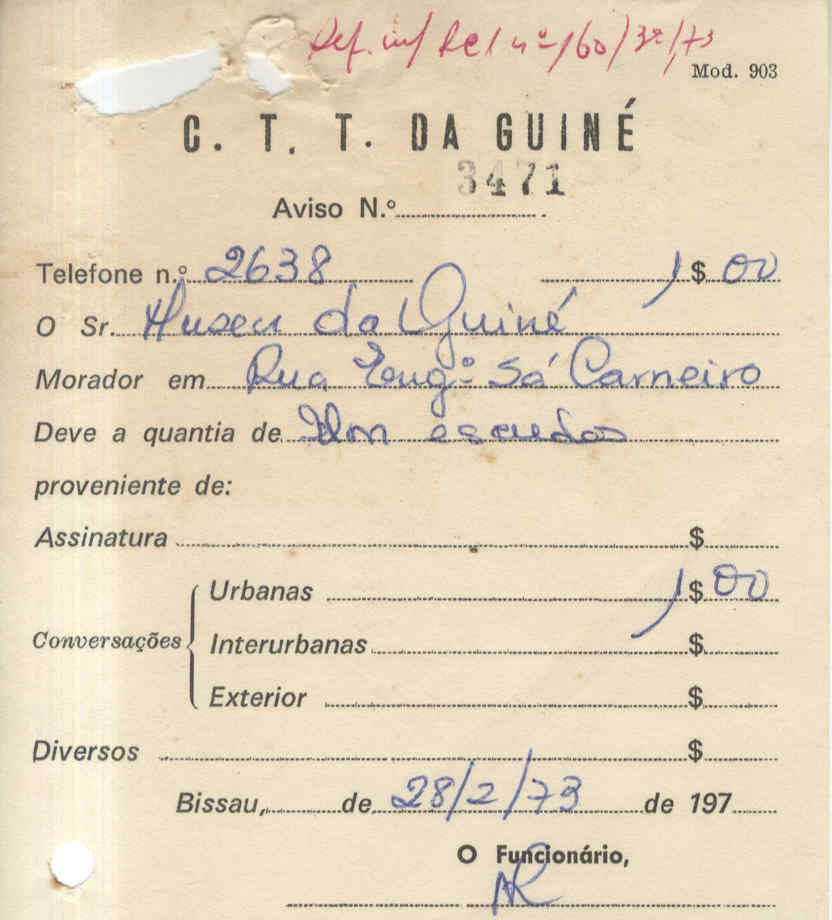 Ref. inf/ Rel nº 160/3ª/73
Mod. 903
C. T. T. DA GUINÉ
3471
Aviso N.º
Telefone n.º 2638 1$00
O Sr. Museu da Guiné
Morador em Rua Engº Sá Carneiro
Deve a quantia de Um escudos
proveniente de:
Assinatura $
Urbanas 1$00
Conversações Interurbanas $
Exterior $
Diversos $
Bissau, de 28/2/73 de 197
O Funcionário,
AR